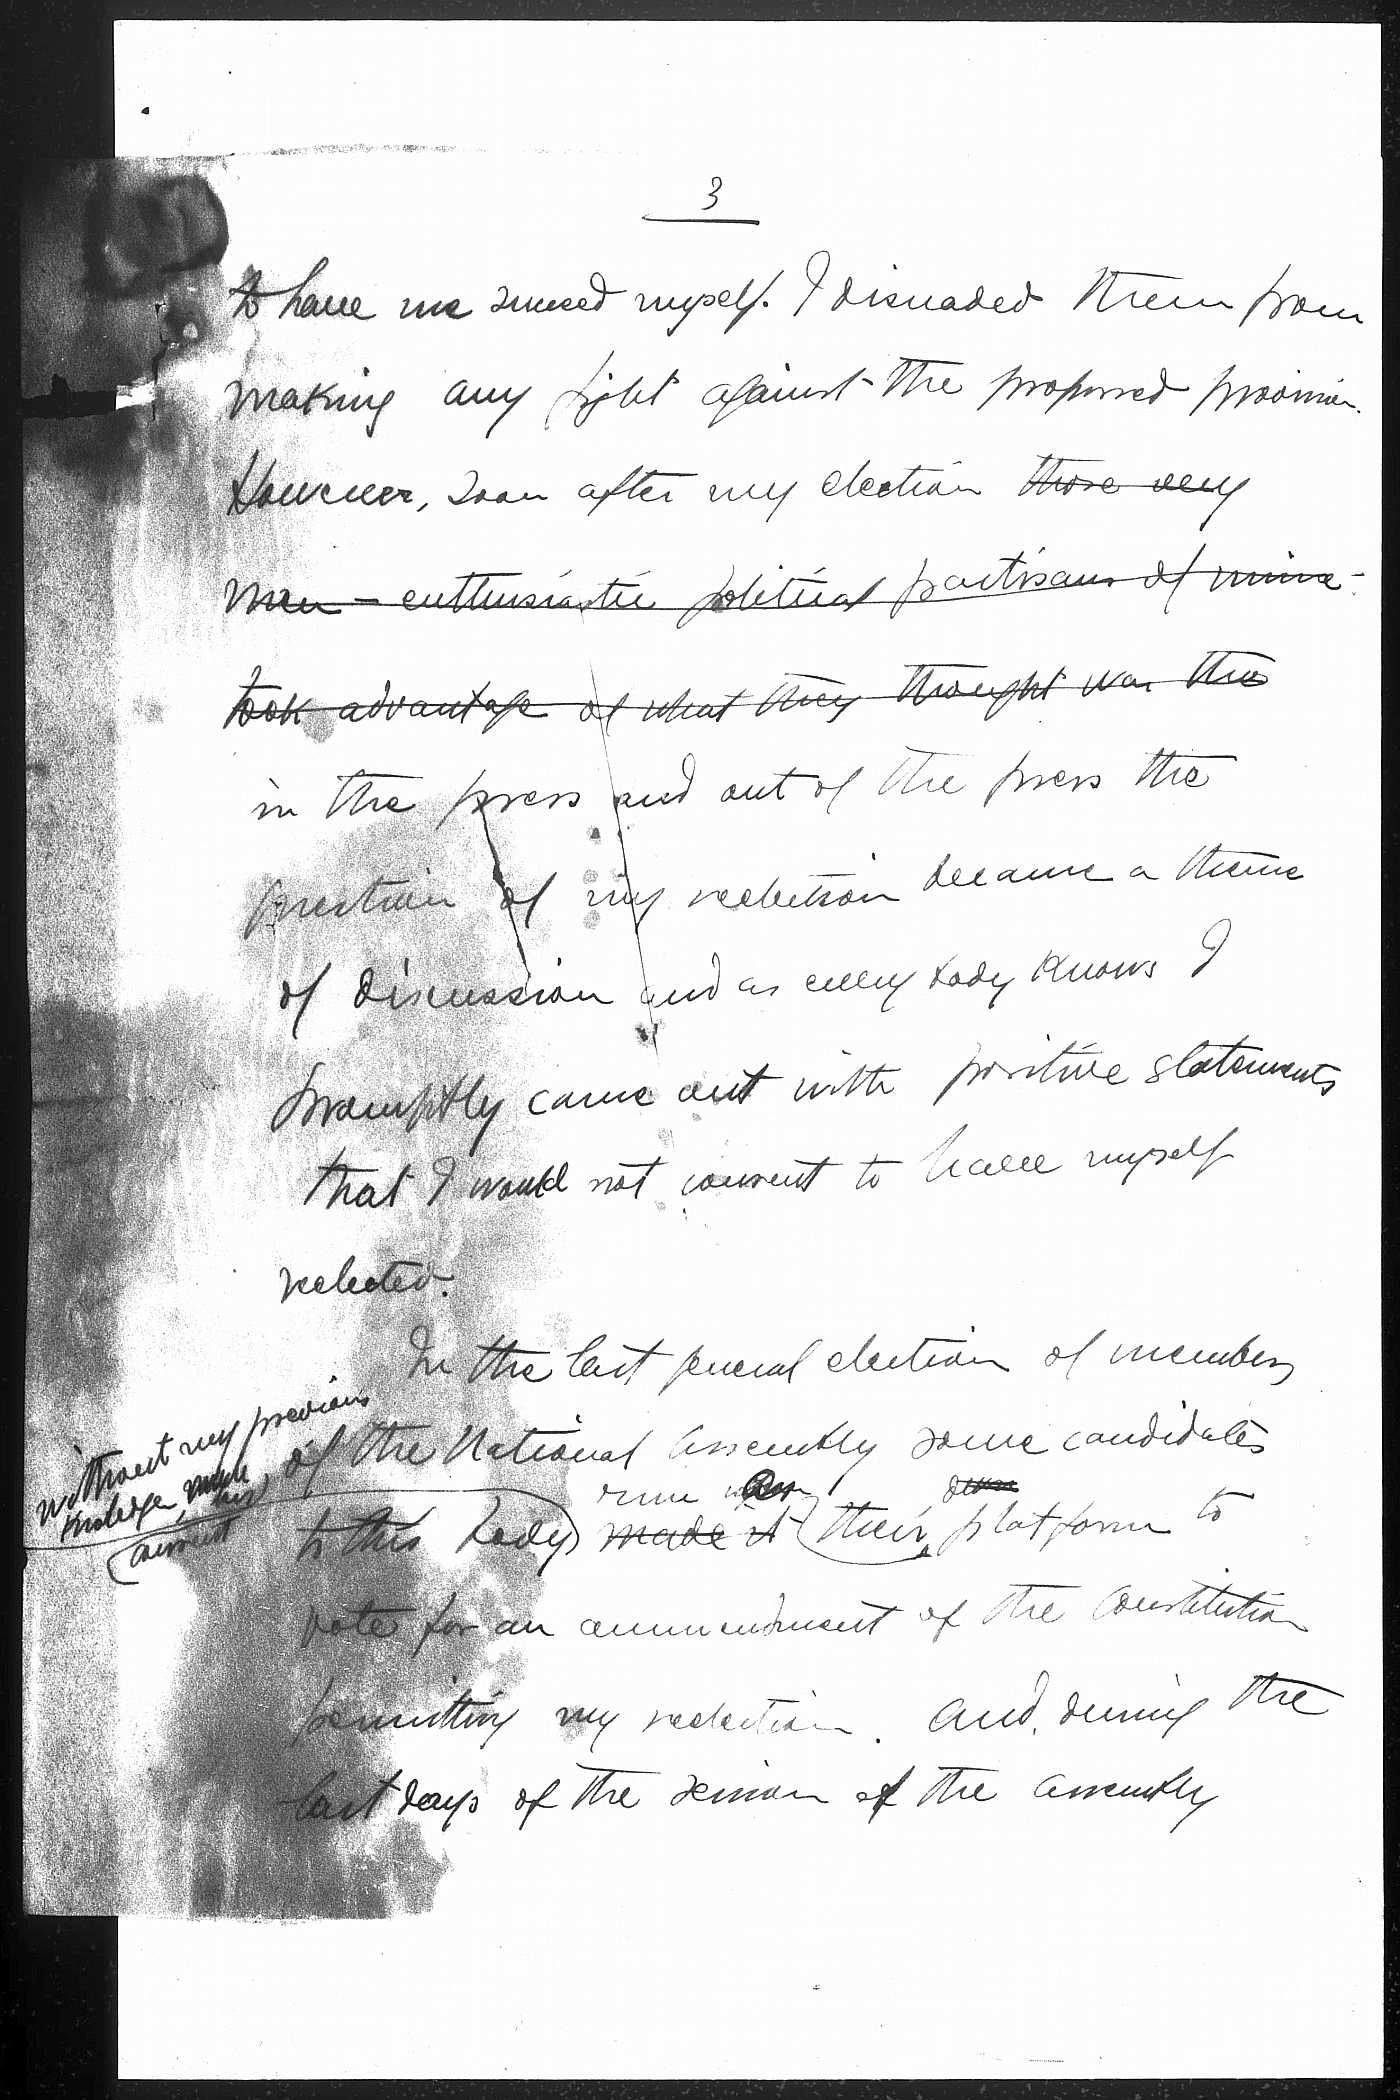 3
to have me succeed myself. I disuaded them from
making any fight against the proposed provision.
However, soon after my election those very
men - enthusiastic political partisans of mine -
took advantage of what they thought was the
in the press and out of the press the
question of my reelection became a theme
of discussion and as every body knows I
promptly came out with positive statements
that I would not consent to have myself
reelected.
In the last general election of members
without my previous
knowledge
consent
of the National Assembly some candidates
run
to this body made it their platform to
vote for an ammendment of the Constitution
permitting my reelection. And, during the
last days of the session of the Assembly